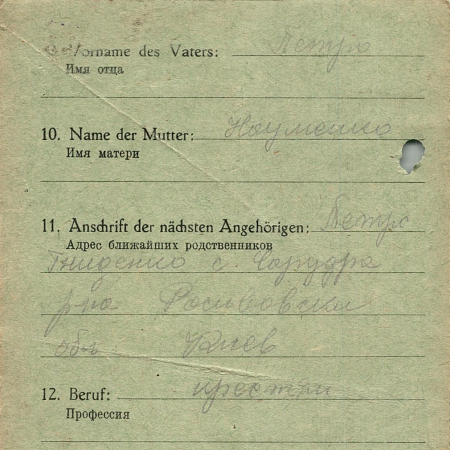 Vorname des Vaters: Петро
Имя отца
10. Name der Mutter: Науменко
Имя матери
11. Anschrift der nächsten Angehörigen: Петро
Адрес ближайших родственников
Гниденко с.
р-на
обл Киев
12. Beruf:
Профессия